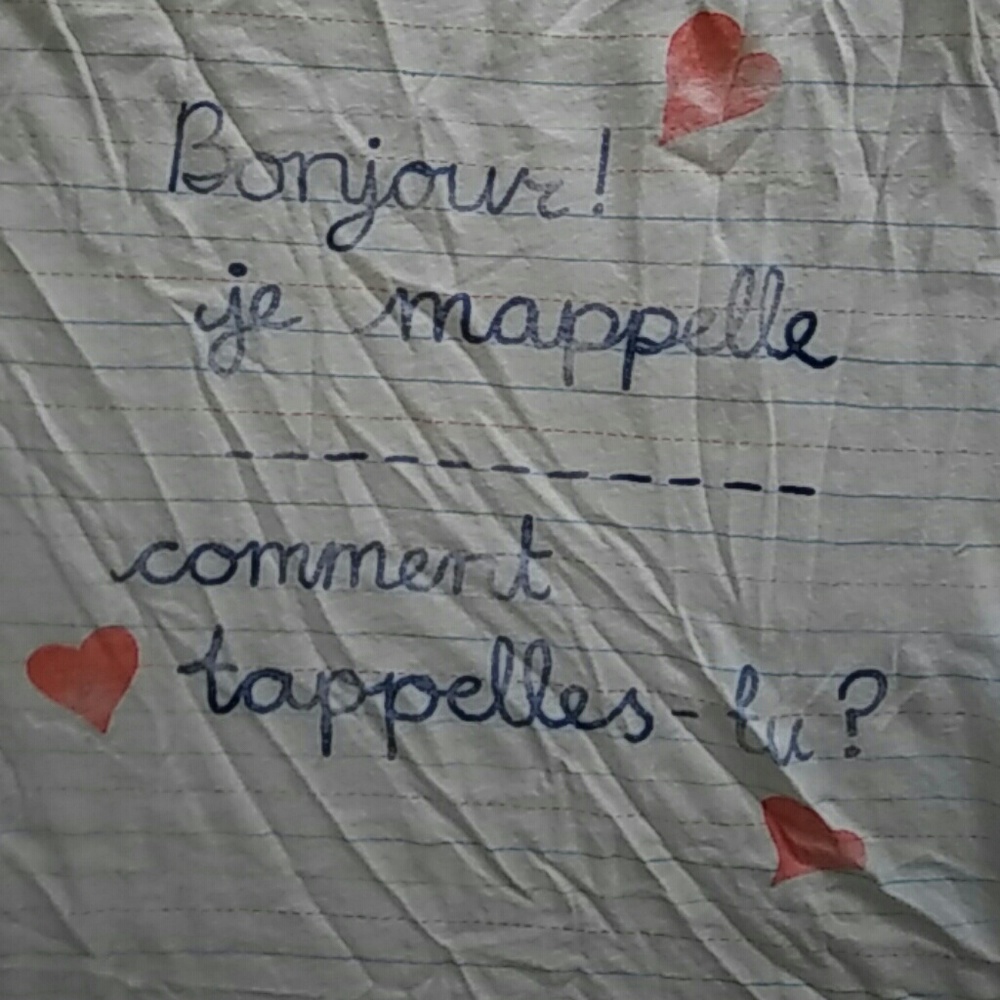 Bonjour!
je mappelle
-----------
comment
tappelles-tu?